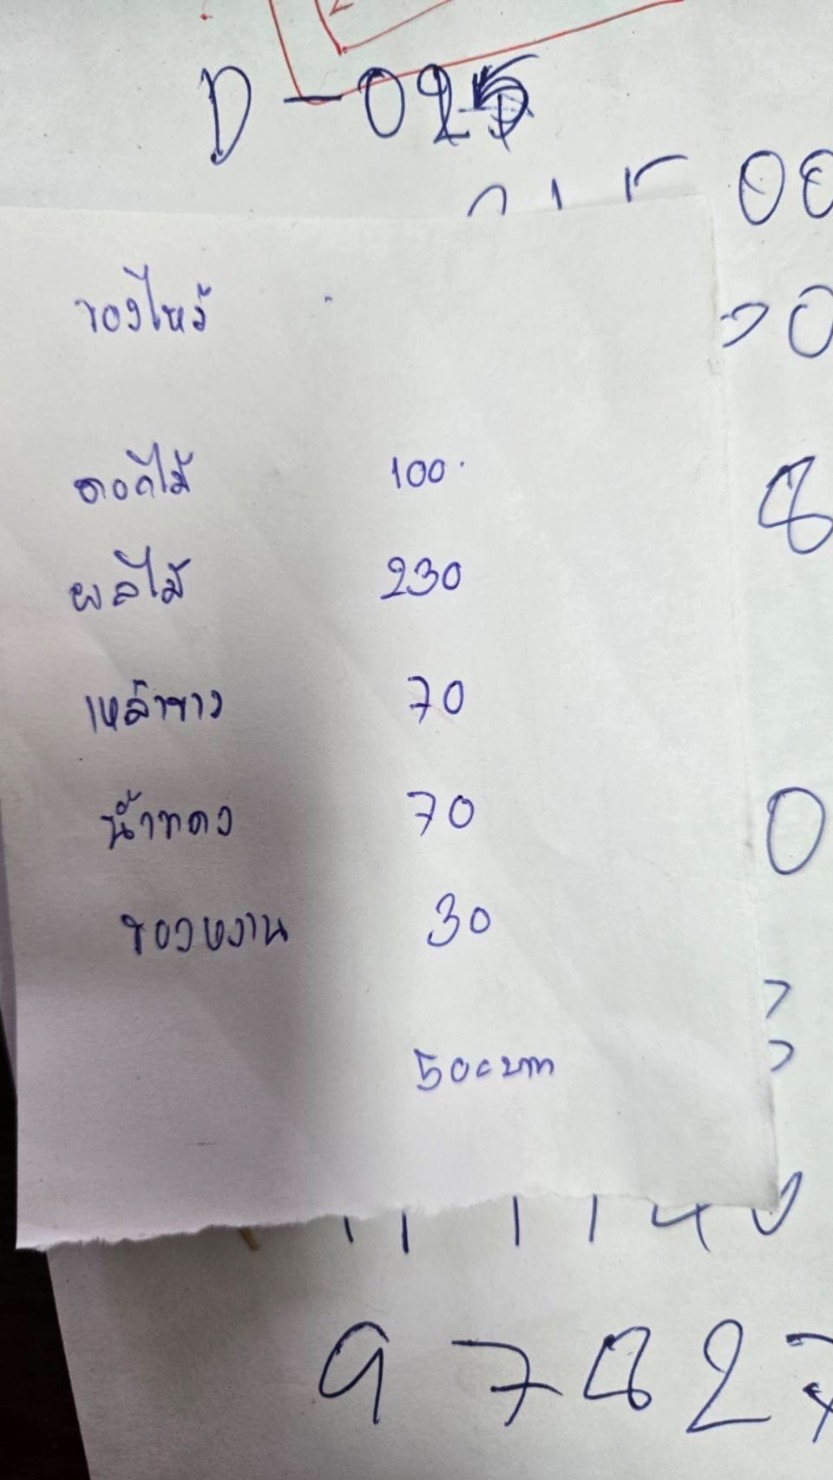 D-025
00
ของไหว้
ดอกไม้ 100
ผลไม้ 230
เหล้าขาว 70
น้ำทดง 70
ของหงาน 30
500 บาท
9782